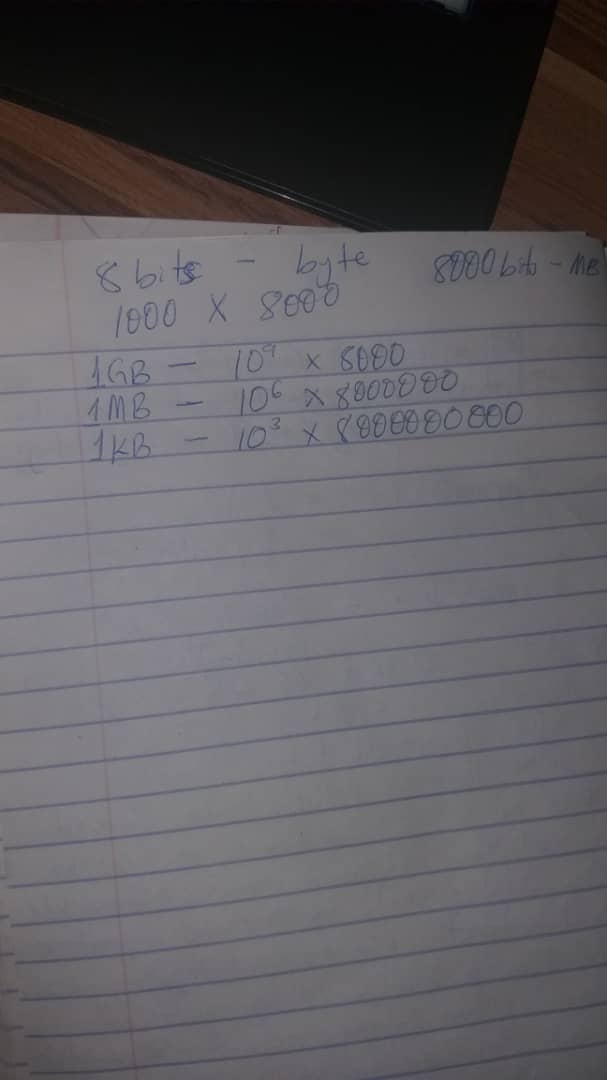 8 bits - byte 8000 bits - MB
1000 X 8000
1GB - 10⁹ x 8000
1MB - 10⁶ x 8000000
1KB - 10³ x 8000000000